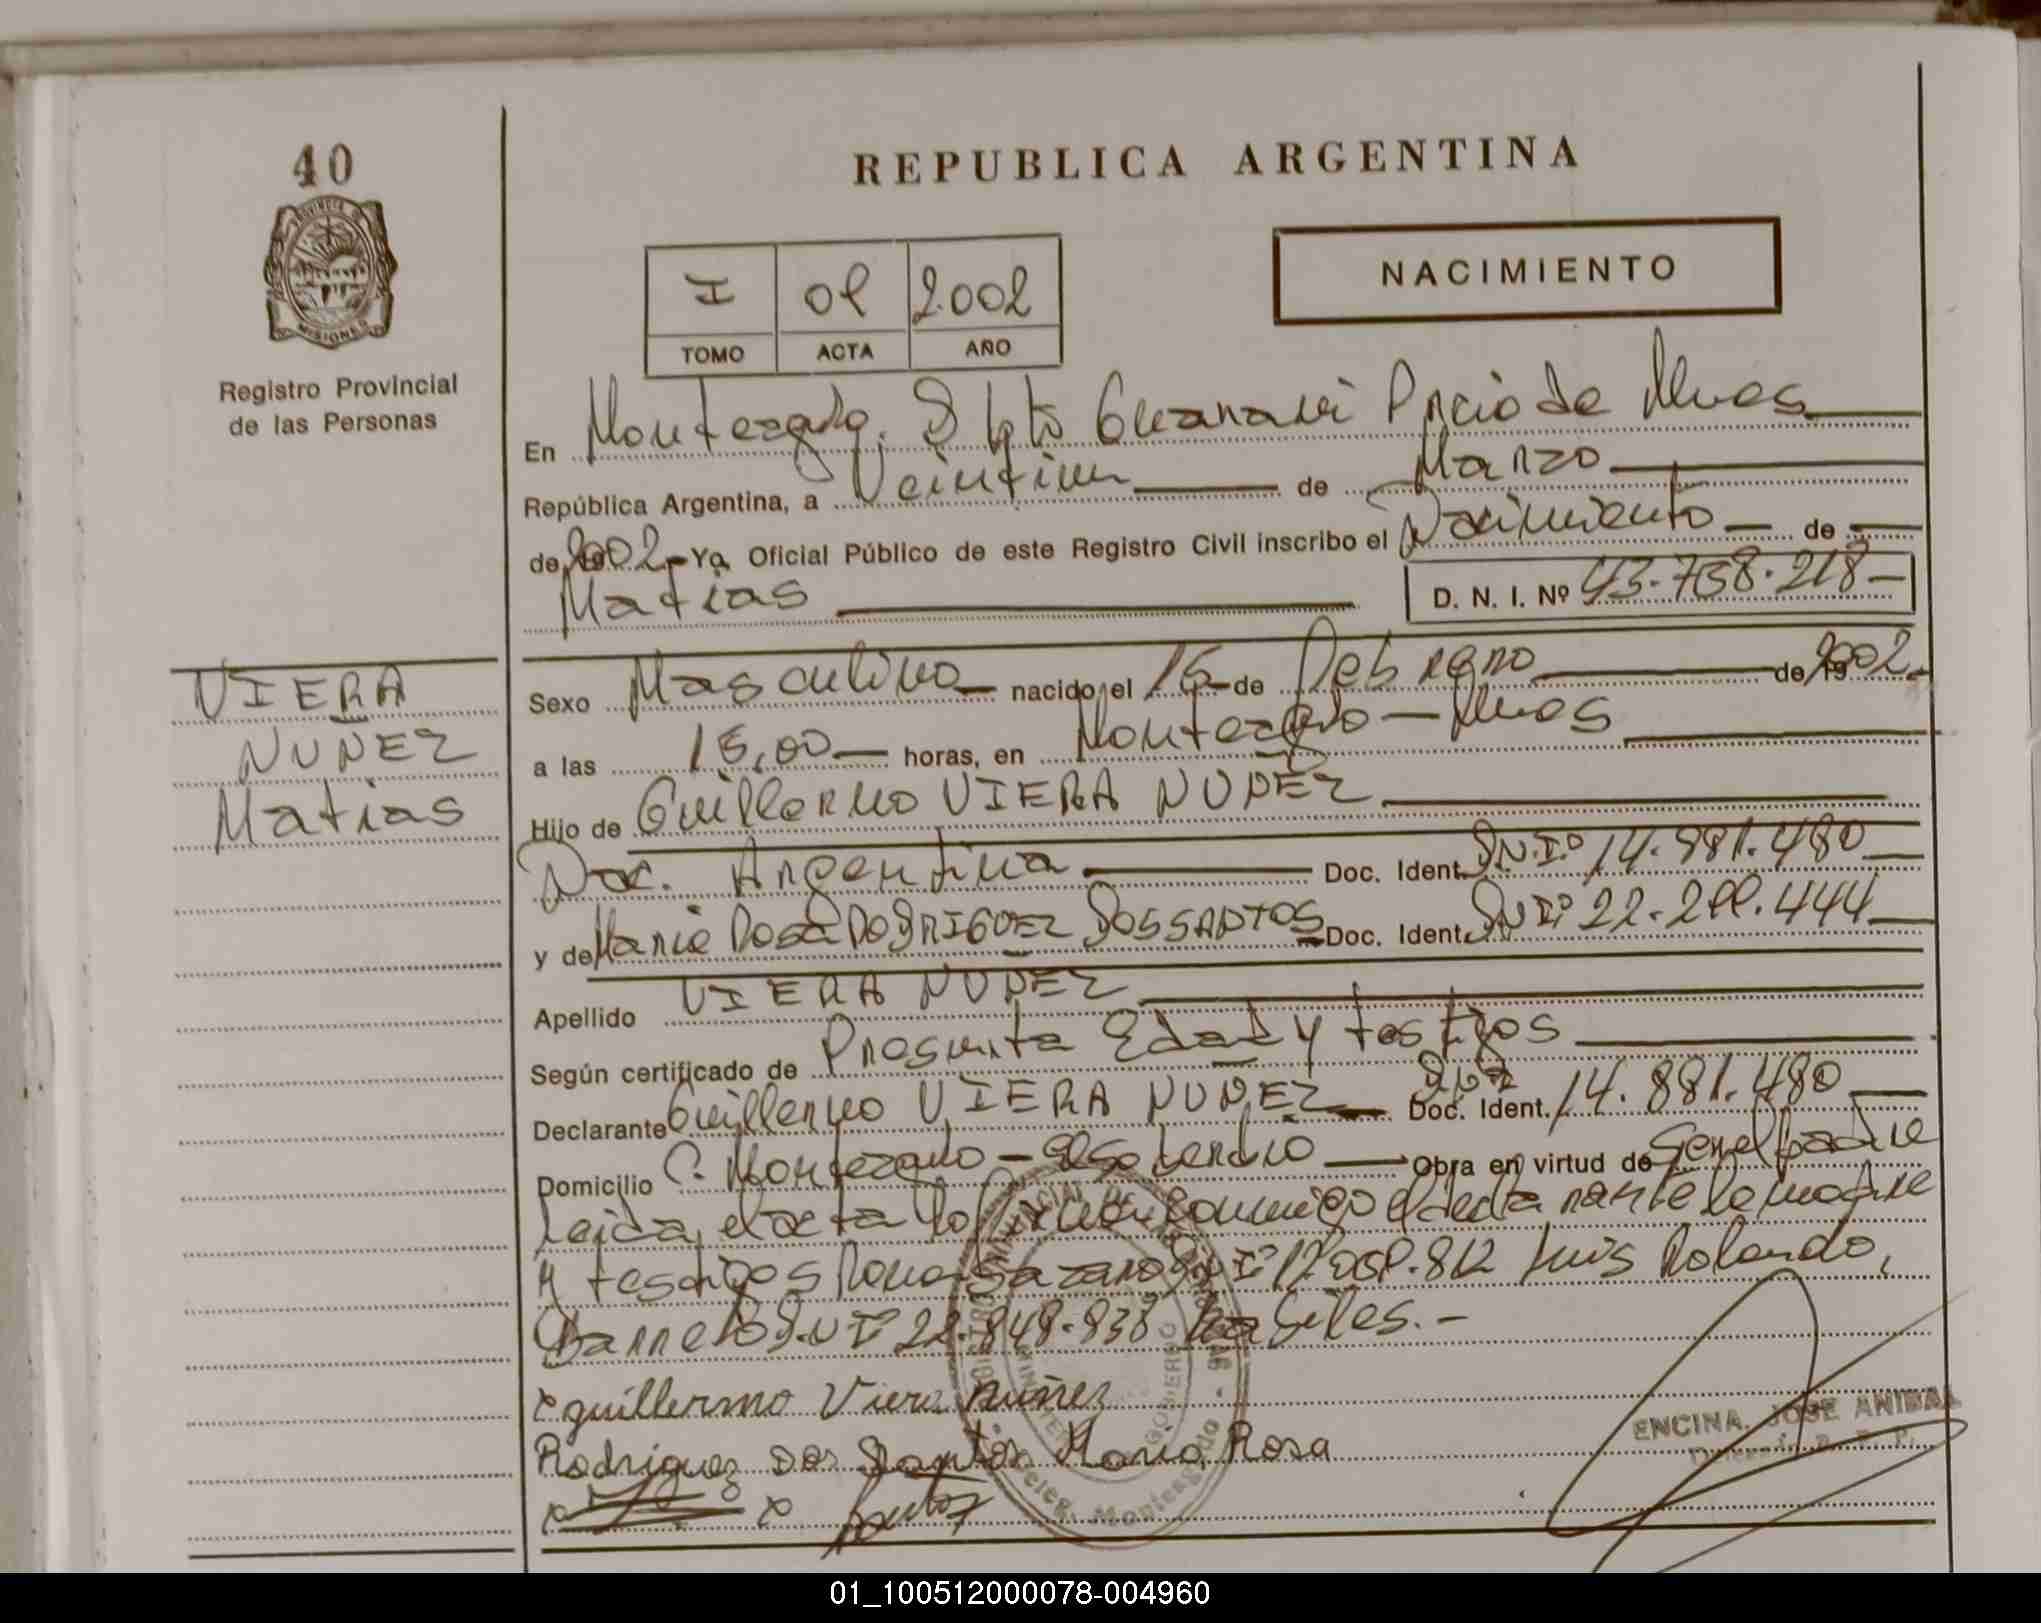 40
REPUBLICA ARGENTINA
NACIMIENTO
I 01 2002
TOMO ACTA AÑO
Registro Provincial
de las Personas
En Monteagudo. Dpto Guarani Pncia de Mnes
República Argentina, a Veintiun de Marzo
de 2002 - Yo, Oficial Público de este Registro Civil inscribo el Nacimiento de
Matias D. N. I. Nº 43.758.218
VIERA
NUÑEZ
Matias
Sexo Masculino nacido el 15 de Febrero de 19 2002
a las 15,00 horas, en Monteagudo - Mnes
Hijo de Guillermo VIERA NUÑEZ
Nac. Argentina Doc. Ident. D.N.I. 14.881.480
y de Maria Rosa RODRIGUEZ DOSSANTOS Doc. Ident. DNI 22.200.444
Apellido VIERA NUÑEZ
Según certificado de Presunta Edad y testigos
Declarante Guillermo VIERA NUÑEZ Doc. Ident. DNI 14.881.480
Domicilio C. Monteagudo - Obra en virtud de Ser el padre
Leida el acta la conmigo el declarante la madre
y testigos DNI Luis Rolando,
Barreto DNI 22.848.838 habiles. -
x guillermo Viera nuñez
Rodriguez Dos Santos Maria Rosa
ENCINA, JOSE ANIBAL
01_100512000078-004960